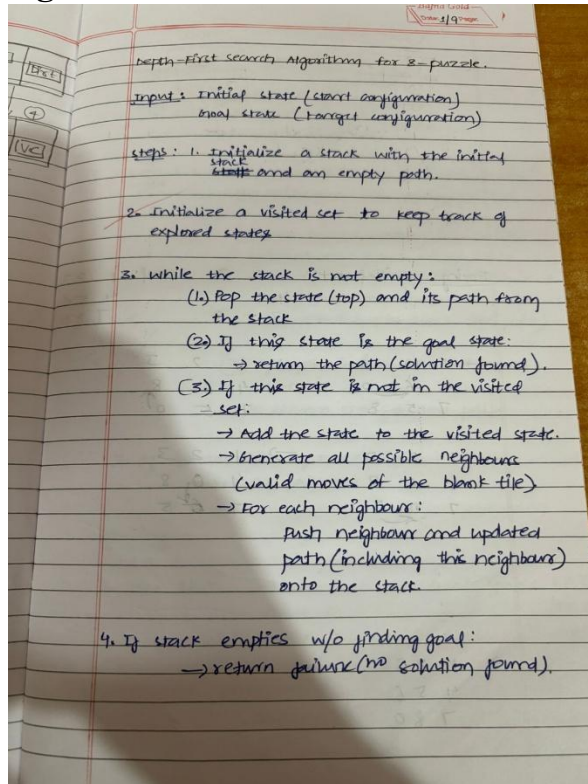 Date 1/9
Depth-First search Algorithm for 8-puzzle.
Input: Initial state (start configuration)
Goal state (target configuration)
steps: 1. Initialize a stack with the initial
stack
and an empty path.
2. Initialize a visited set to keep track of
explored states
3. while the stack is not empty:
(1.) Pop the state (top) and its path from
the stack
(2.) If this state is the goal state:
→ return the path (solution found).
(3.) If this state is not in the visited
set:
→ Add the state to the visited state.
→ Generate all possible neighbours
(valid moves of the blank tile)
→ For each neighbour:
Push neighbour and updated
path (including this neighbour)
onto the stack.
4. If stack empties w/o finding goal:
→ return failure (no solution found).